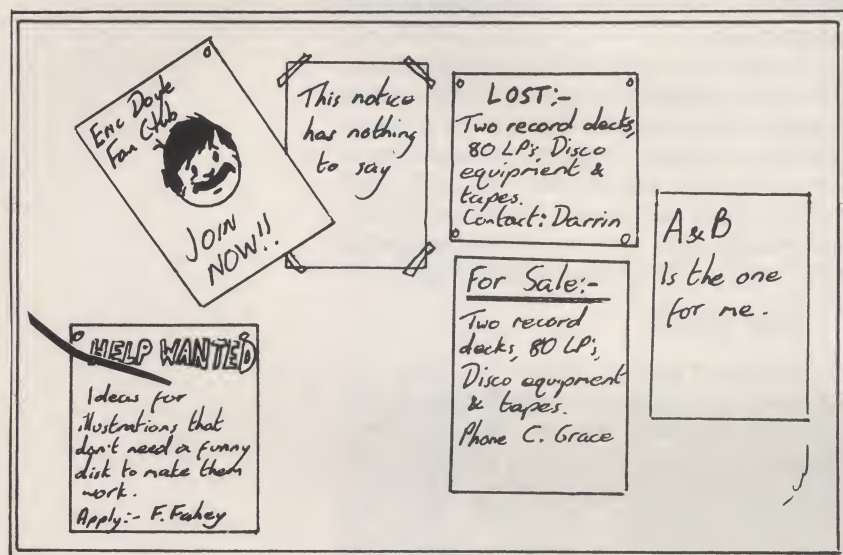 Eric Doyle
Fan Club
JOIN
NOW!!
This notice
has nothing
to say
LOST:-
Two record decks,
80 LP's, Disco
equipment &
tapes.
Contact: Darrin
A&B
Is the one
for me.
For Sale:-
Two record
decks, 80 LP's,
Disco equipment
& tapes.
Phone C. Grace
HELP WANTED
Ideas for
illustrations that
don't need a funny
disk to make them
work.
Apply:- F. Fahey